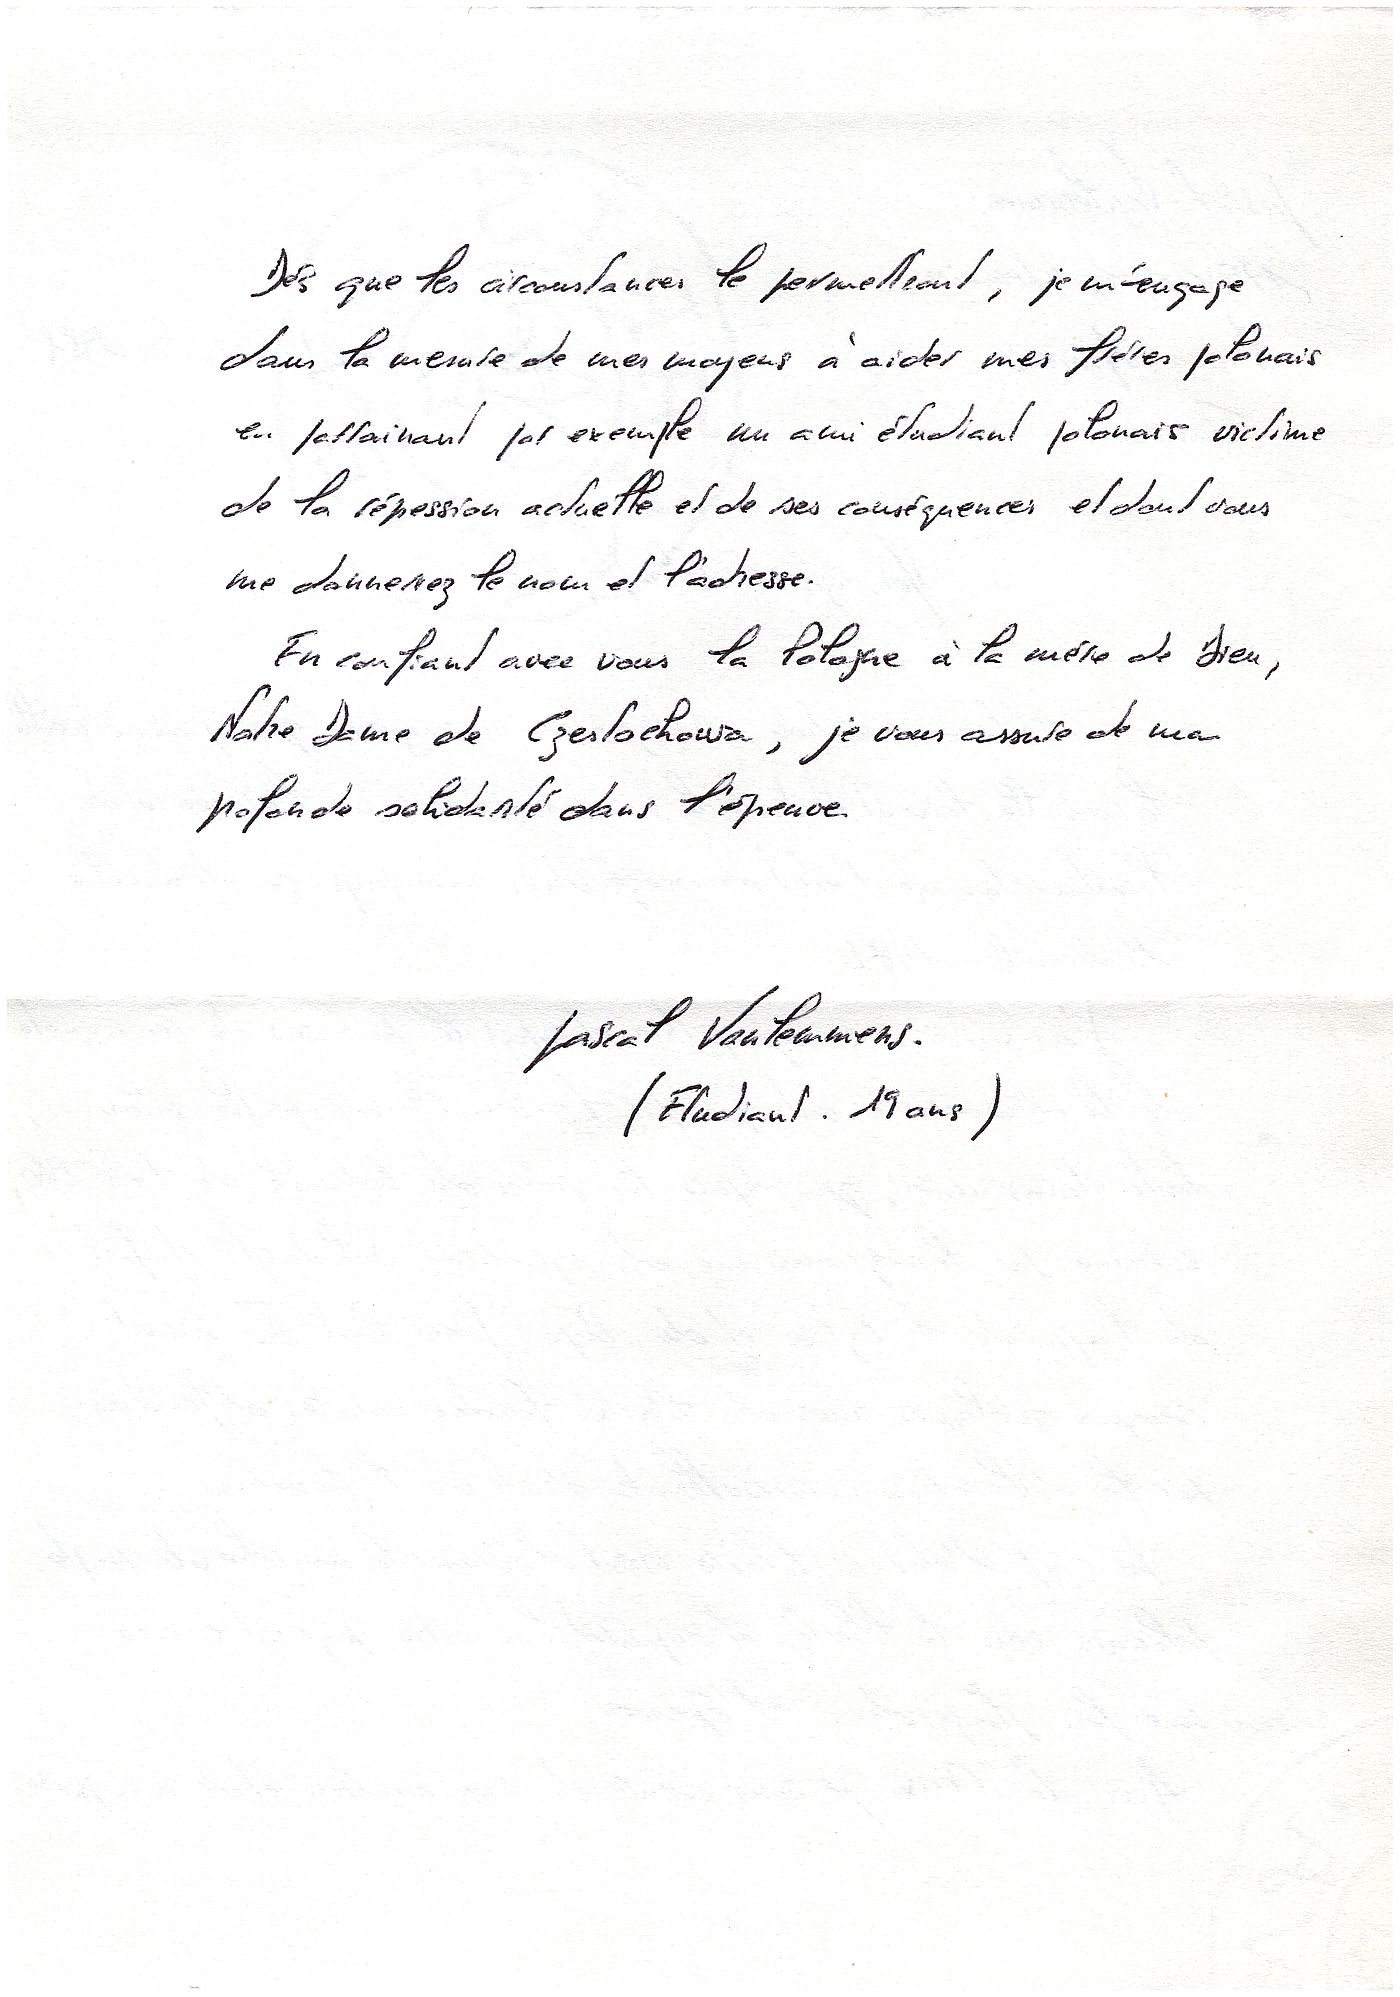 Dès que les circonstances le permettront, je m'engage
dans la mesure de mes moyens à aider mes frères polonais
en parrainant par exemple un ami étudiant polonais victime
de la répession actuelle et de ses conséquences et dont vous
me donnerez le nom et l'adresse.
En confiant avec vous la Pologne à la mère de Dieu,
Notre Dame de Czestochowa, je vous assure de ma
profonde solidarité dans l'épreuve.
Pascal Vanlemmens.
(Etudiant. 19 ans)